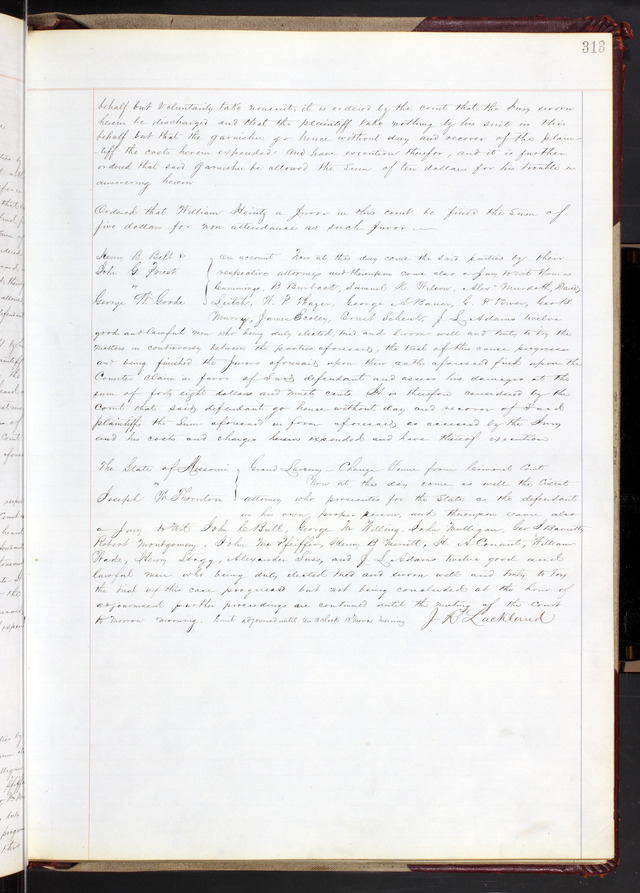 313
behalf but voluntarily take nonsuit, it is ordered by the court that the Jury sworn
herein be discharged and that the plaintiff take nothing by his suit in this
behalf but that the garnishee go hence without day and recover of the plain-
-tiff the costs herein expended and have execution therefor, and it is further
ordered that said Garnishee be allowed the Sum of ten dollars for his trouble in
answering herein
Ordered that William Heintz a Juror in this court be fined the Sum of
five dollars for non attendance as such Juror
Henry B. Belt & on account Now at this day come the said parties by their
John G. Priest respective attorneys and thereupon come also a Jury to wit Thomas
" Cummings, B. Burbach, Samuel H. Wilson, Alex Murdoch, David
George W. Goode Leitch, W. P. Thayer, George A Bauer, G. R Power, Geo B
Murray, James Cooley, Ernst Schenck, J. L. Adams twelve
good and lawful men who being duly elected tried and sworn well and truly to try the
matters in controversy between the parties aforesaid, the trial of this cause progresses
and being finished the Jurors aforesaid upon their oath aforesaid find upon the
Counter claim in favor of said defendant and assess his damages at the
sum of forty eight dollars and ninety cents It is therefore considered by the
Court that said defendant go hence without day and recover of Said
plaintiffs the Sum aforesaid in form aforesaid as assessed by the Jury
and his costs and charges herein expended and have thereof execution
The State of Missouri Grand Larceny – Change Venue from Criminal Court
" Now at this day come as well the Circuit
Joseph W Thornton attorney who prosecutes for the State as the defendant
in his own proper person, and thereupon came also
a Jury to wit John C Bull, George W Welling, John Mulligan, Geo S Barnett,
Robert Montgomery, John M Pfeiffer, Henry B Merrett, H. A Conant, William
Wade, Henry Stagg, Alexander and J L Adams twelve good and
lawful men who being duly elected tried and sworn well and truly to try
the trial of this case progresses but not being concluded at the hour of
adjournment further proceedings are continued until the meeting of the Court
to morrow morning. Court adjourned until ten oclock to morrow morning J R Lackland